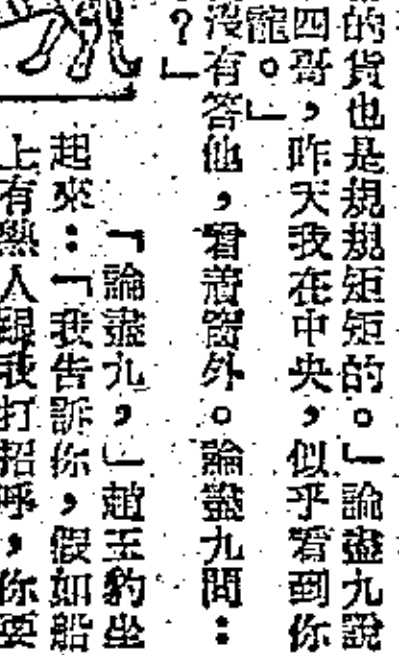 的貨也是規規矩矩的。」論盡九說
四哥,昨天我在中央,似乎看到你
寵。」
沒有答他,看着窗外。論盡九問:
?」
「論盡九,」趙玉豹坐
起來:「我告訴你,假如船
上有熟人跟我打招呼,你要